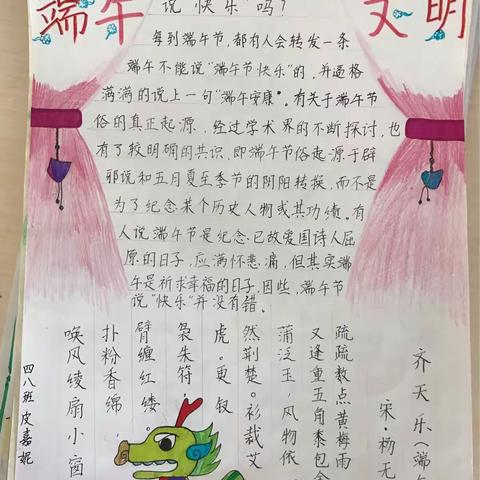 端午 文明
说"快乐"吗?
每到端午节,都有人会转发一条
端午不能说"端午节快乐"的,并逼格
满满的说上一句"端午安康"。有关于端午节
俗的真正起源,经过学术界的不断探讨,也
有了较明确的共识,即端午节俗起源于辟
邪说和五月夏至季节的阴阳转换,而不是
为了纪念某个历史人物或其功绩。有
人说端午节是纪念已故爱国诗人屈
原的日子,应满怀悲痛,但其实端
午是祈求幸福的日子,因些,端午节
说"快乐"并没有错。
齐天乐(端午
宋·杨无
疏疏数点黄梅雨
又逢重五角黍包金
蒲泛玉,风物依
然荆楚。衫裁艾
虎。更钗
袅朱符,
臂缠红缕。
扑粉香绵,
唤风绫扇小窗
四八班皮嘉妮